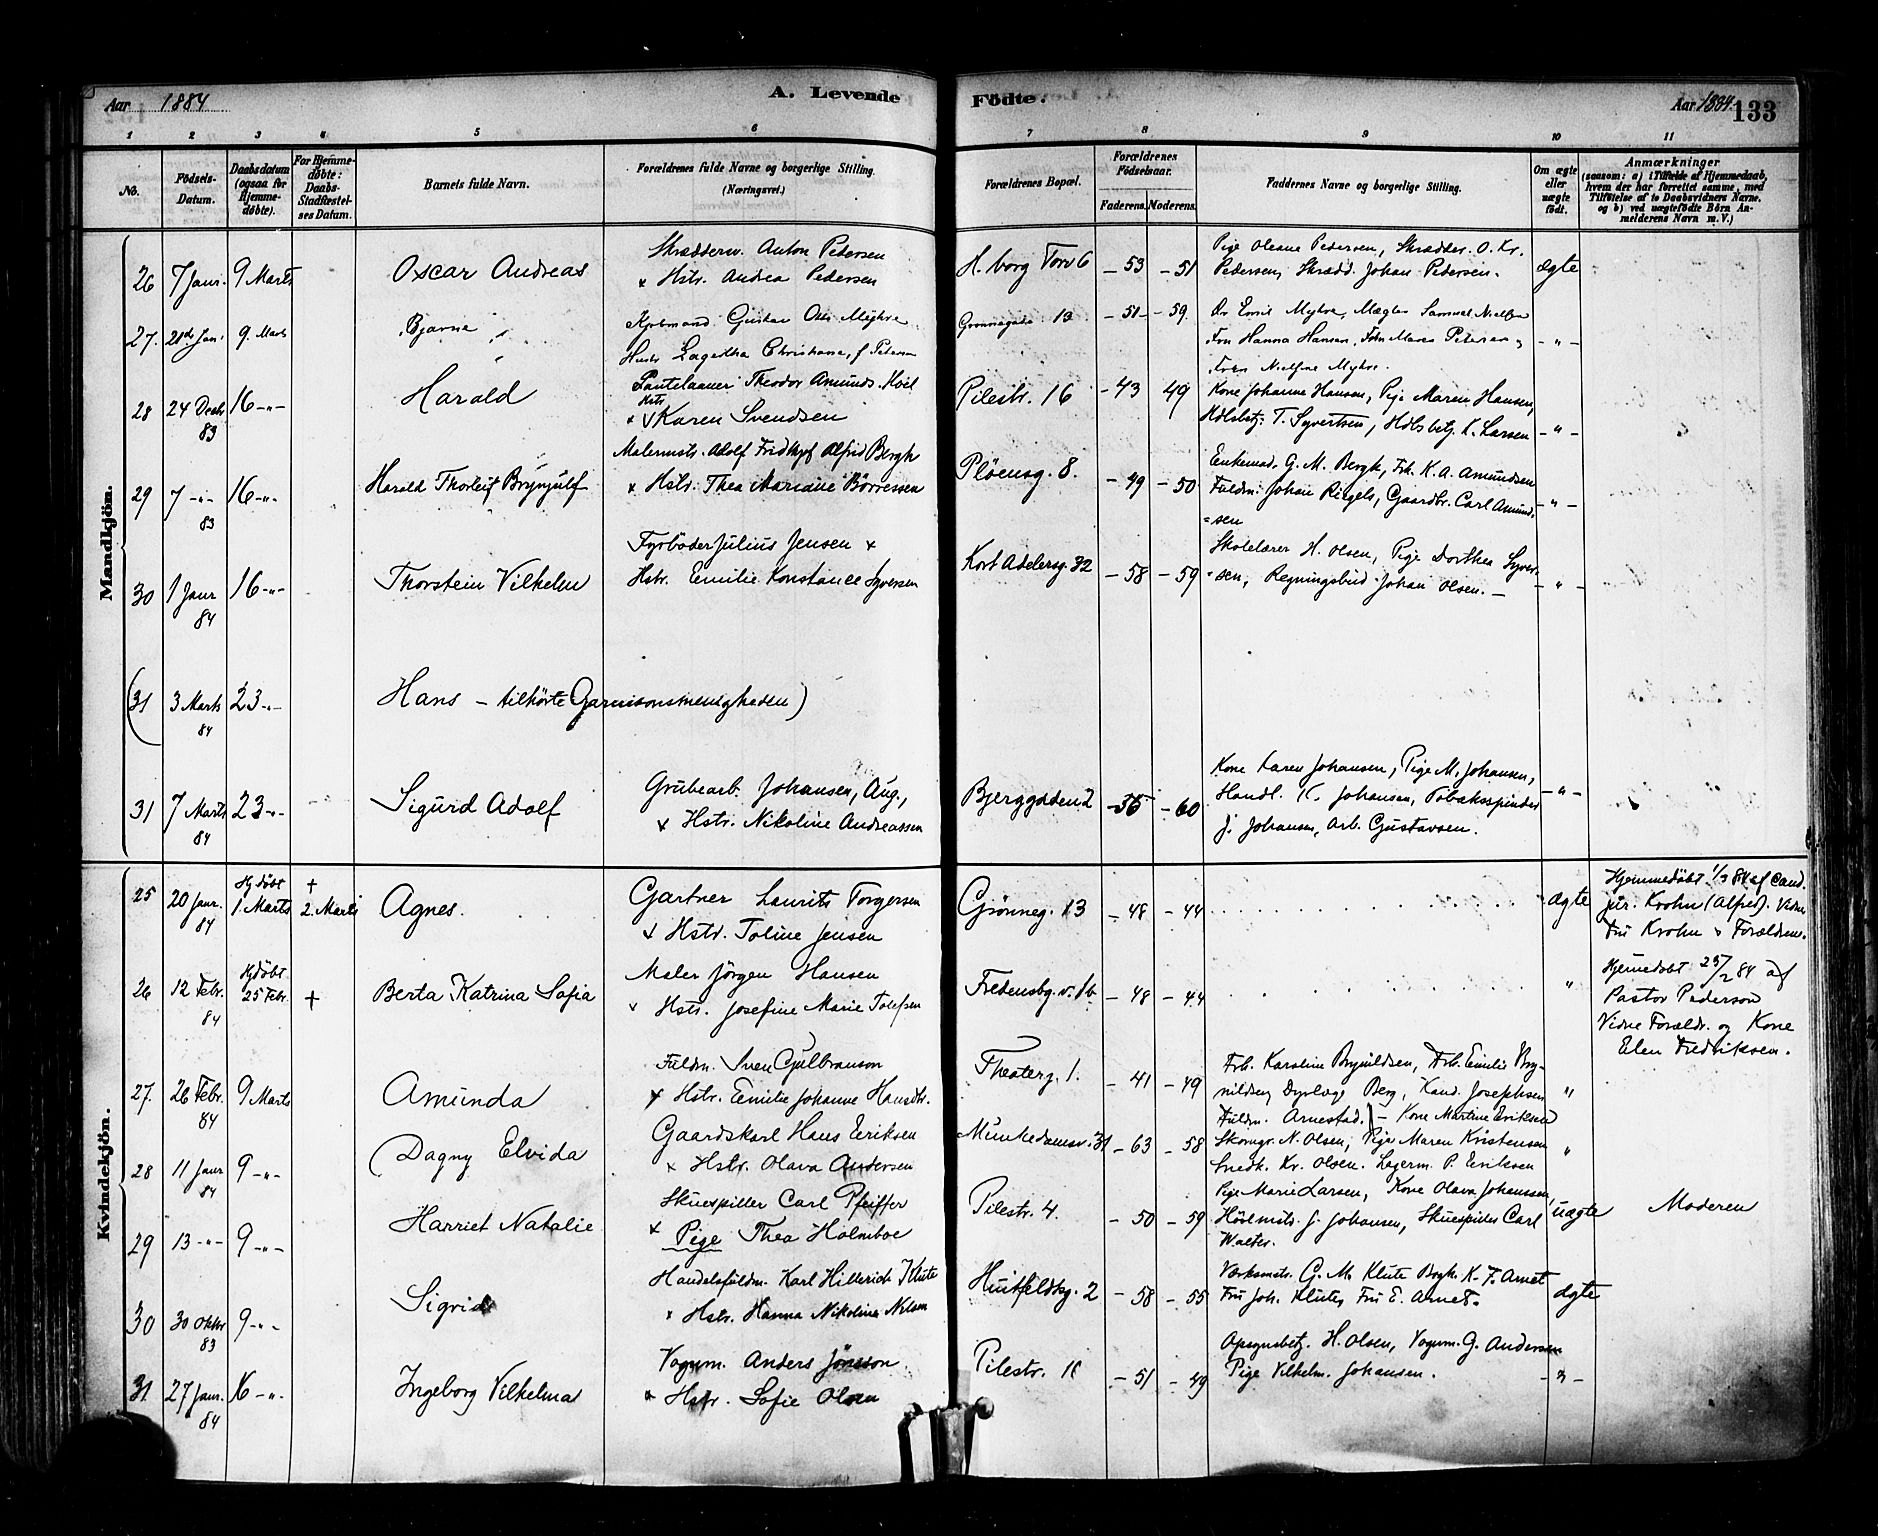 Aar 1884 A. Levende Fødte. Aar 1884. 133
1 2 3 4 5 6 7 8 9 10 11
No.
Fødsels-Datum.
Daabsdatum (ogsaa for Hjemme-døbte).
For Hjemme-døbte: Daabs-Stadfæstelses Datum.
Barnets fulde Navn.
Forældrenes fulde Navne og borgerlige Stilling. (Næringsvei.)
Forældrenes Bopæl.
Forældrenes Fødselsaar.
Faderens. Moderens.
Faddernes Navne og borgerlige Stilling.
Om ægte eller uægte født.
Anmærkninger
(saasom: a) i Tilfælde af Hjemmedaab, hvem der har forrettet samme, med Tilføielse af to Daabsvidners Navne. og b) ved uægtefødte Børn Anmelderens Navn m. V.)
Mandkjön.
26 7 Janr. 9 Marts Oscar Andreas
Skrædderm. Anton Pedersen
x Hstr. Andrea Pedersen
H.borg Torv 6 - 53 - 51
Pige Oleana Pedersen, Skrædder. O. Kr.
Pedersen, Skrædd. Johan Pedersen.
ægte
27. 9. Marts Bjarne
Kjøbmand Gustav Myhre
Hustr Lagertha Christiane, f. Petersen
Grønnegade 13 - 51 - 59
Emil Myhre, Mægler Samuel Nielsen
Frn Hanna Hansen, Petersen
Myhre.
- " -
28 24 Decbr 83 16 - " - Harald
Pantelaaner Theodor Amunds. Hoel
Hstr
x Karen Svendsen
Pilestr. 16 - 43 49
Kone Johanne Hansen, Pige Maren Hansen,
Hdlsbetj. T. Syvertsen, Hdlsbetj. K. Larsen
- " -
29 7 - " - 83 16 - " - Harald Thorleif Brynjulf
Malermstr. Adolf Fridthjof Alfred Bergh
x Hstr. Thea Mariane Børresen
Pløensg. 8. - 49 - 50
Enkemad. G. M. Bergh, Frk. K. A. Amundsen
Fuldm. Johan Ringels, Gaardbr. Carl Amund-
=sen
- " -
30 1 Janr 84 16 - " - Thorstein Vilhelm
Fyrbøder Julius Jensen x
Hstr. Emilie Konstance Syversen
Kort Adelersg. 32 - 58 - 59
Skolelærer H. Olsen, Pige Dorthea Syver-
=sen, Regningsbud Johan Olsen. -
- " -
(31 3 Marts 84 23 - " - Hans - tilhørte Garnisonsmenigheden)
31 7 Marts 84 23 - " - Sigurd Adolf
Grubearb. Johansen, Aug.,
x Hstr. Nikoline Andreassen
Bjerggaden 2 - 55 - 60
Kone Karen Johansen, Pige M. Johansen,
Handl. K. Johansen, Tobaksspinder
J. Johansen, Arb. Gustavsen.
- " -
Kvindekjön.
25 20 Janr. 84 Hjdøbt 1 Marts + 2. Marts Agnes.
Gartner Laurits Torgersen
x Hstr. Toline Jensen
Grønneg. 13 - 48 - 44
ægte
Hjemmedøbt 1/3 84 af Cand.
jur. Krohn (Alfred). Vidne
Fru Krohn & Forældrene.
26 12 Febr. 84 Hjdøbt 25 Febr. + Berta Katrina Sofia
Maler Jørgen Hansen
x Hstr. Josefine Marie Tolefsen
Fredensbg.v. 1b - 48 - 44
"
Hjemedøbt 25/2 84 af
Pastor Pederson
Vidne Forældr. og Kone
Elen Fredriksen.
27. 26 Febr. 84 9 Marts Amunda
Fuldm. Sven Gulbranson
x Hstr. Emilie Johanne Hansdtr.
Theaterg. 1. - 41 - 49
Frk. Karoline Brynildsen, Frk. Emilie Bry-
nildsen, Dyrlæge Berg, Kand. Josephsen
Fuldm. Arnestad. -
"
28 11 Janr 84 9 - " - Dagny Elvida
Gaardskarl Hans Eriksen
x Hstr. Olava Andersen
Munkedamsv. 31 - 63 - 58
Kone Martine Eriksen
Skomgr. N. Olsen, Pige Maren Kristensen
Snedk. Kr. Olsen. Lagerm. P. Eriksen
"
29 13 - " - 9 - " - Harriet Natalie
Skuespiller Carl Pfeiffer
x Pige Thea Holmboe
Pilestr. 4. - 50 - 59
Pige Marie Larsen, Kone Olava Johanssen,
J. Johansen, Skuespiller Carl
Walter.
uægte
Moderen
30 30 Oktbr 83 9 - " - Sigrid
Handelsfuldm. Karl Hillerich Klute
x Hstr. Hanna Nikoline Nilsen
Huitfeldtsg. 2 - 58 - 55
Værksmstr. G. M. Klute Bogh. K. F. Arnet
Fru Joh. Klute, Fru E. Arnet.
ægte
31. 27 Janr. 84 16 - " - Ingeborg Vilhelma
Vognm. Anders Jönsson.
x Hstr. Sofie Olsen
Pilestr. - 51 - 49
Opsynsbetj. H. Olsen, Vognm. G. Andersen
Pige Vilhelm. Johansen.
- " -